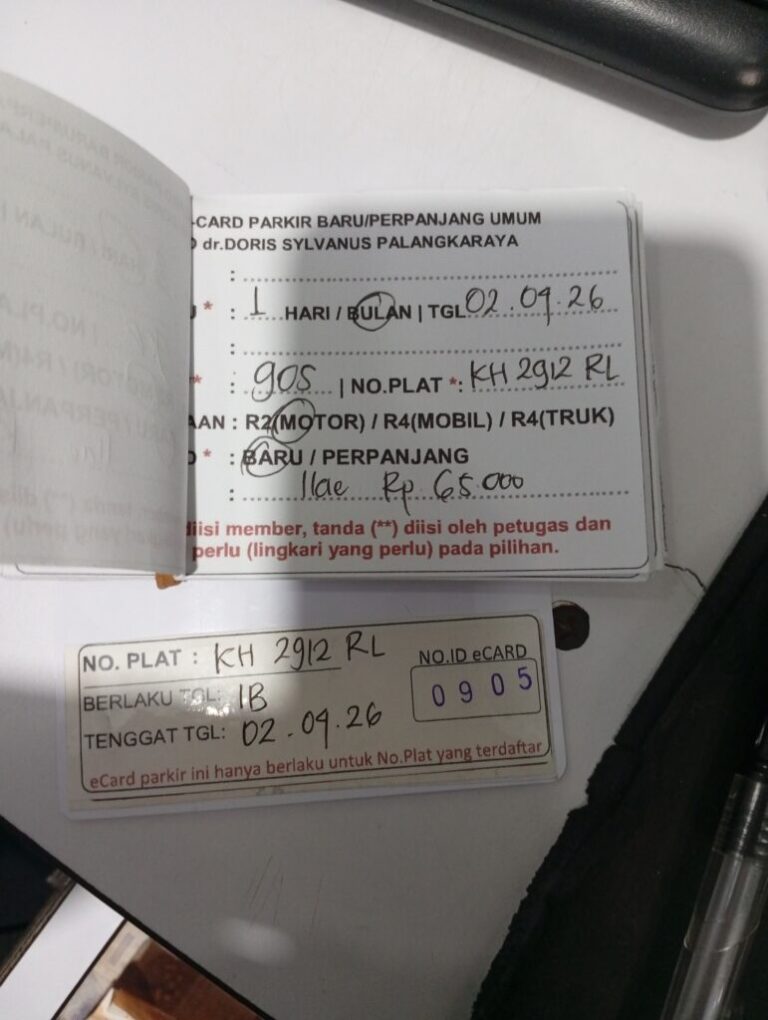 -CARD PARKIR BARU/PERPANJANG UMUM
dr.DORIS SYLVANUS PALANGKARAYA
: 
* : 1 HARI / BULAN | TGL 02.09.26
:
* : 905 | NO.PLAT *: KH 2912 RL
AAN : R2(MOTOR) / R4(MOBIL) / R4(TRUK)
* : BARU / PERPANJANG
: Rp 65.000
diisi member, tanda (**) diisi oleh petugas dan
perlu (lingkari yang perlu) pada pilihan.
NO. PLAT : KH 2912 RL
NO.ID eCARD
BERLAKU TGL: 1B
0905
TENGGAT TGL: 02.09.26
eCard parkir ini hanya berlaku untuk No.Plat yang terdaftar